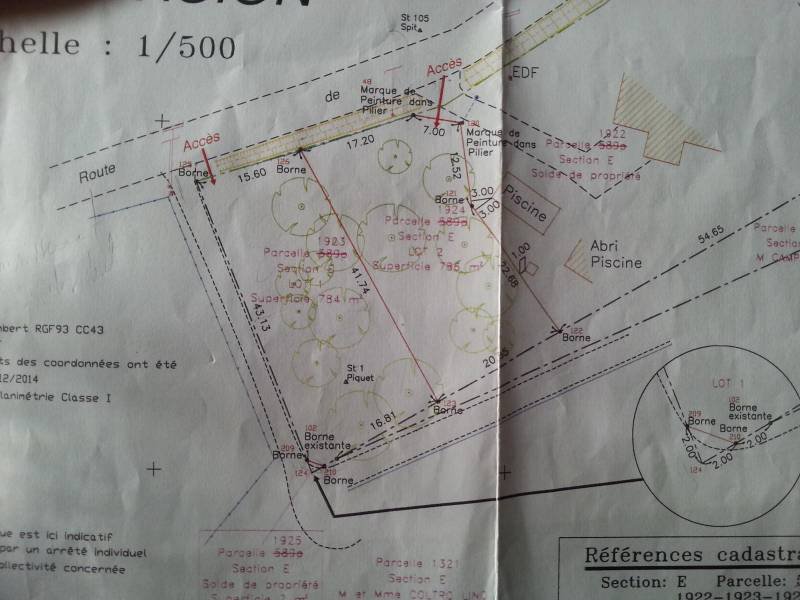 helle : 1/500
St 105
Spit
Accès
EDF
de
48
Marque de
Peinture dans
Pilier
7.00
Marque de
Peinture dans
Pilier
1922
Parcelle 589a
Section E
Solde de propriété
Accès
Route
Borne
15.60
126
Borne
17.20
12.52
121
Borne
3.00
3.00
Piscine
1924
Parcelle 589a
Section E
LOT 2
Superficie 785 m²
1923
Parcelle 589a
Section E
LOT 1
Superficie 784 m²
41.74
43.13
22.68
Abri
Piscine
54.65
Parcelle
Section
M CAMP
122
Borne
mbert RGF93 CC43
ts des coordonnées ont été
12/2014
lanimétrie Classe I
St 1
Piquet
16.81
123
Borne
102
Borne
existante
209
Borne
124
210
Borne
LOT 1
102
Borne
existante
209
Borne
Borne
210
2.00
2.00
2.00
124
ue est ici indicatif
par un arrêté individuel
ollectivité concernée
1925
Parcelle 589a
Section E
Solde de propriété
Superficie 2 m²
Parcelle 1321
Section E
M et Mme COLTRO LINO
Références cadastra
Section: E Parcelle: 5
1922-1923-192